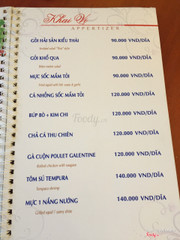 Khai Vị
APPETIZER
GỎI HẢI SẢN KIỂU THÁI 90.000 VND/DĨA
GỎI KHỔ QUA 90.000 VND/DĨA
MỰC SỐC MẮM TỎI 90.000 VND/DĨA
CÁ NHỒNG SỐC MẮM TỎI 120.000 VND/DĨA
BÚP BÒ + KIM CHI 120.000 VND/DĨA
CHẢ CÁ THU CHIÊN 120.000 VND/DĨA
GÀ CUỘN POULET GALENTINE 120.000 VND/DĨA
TÔM SÚ TEMPURA 140.000 VND/DĨA
MỰC 1 NẮNG NƯỚNG 140.000 VND/DĨA
Foody